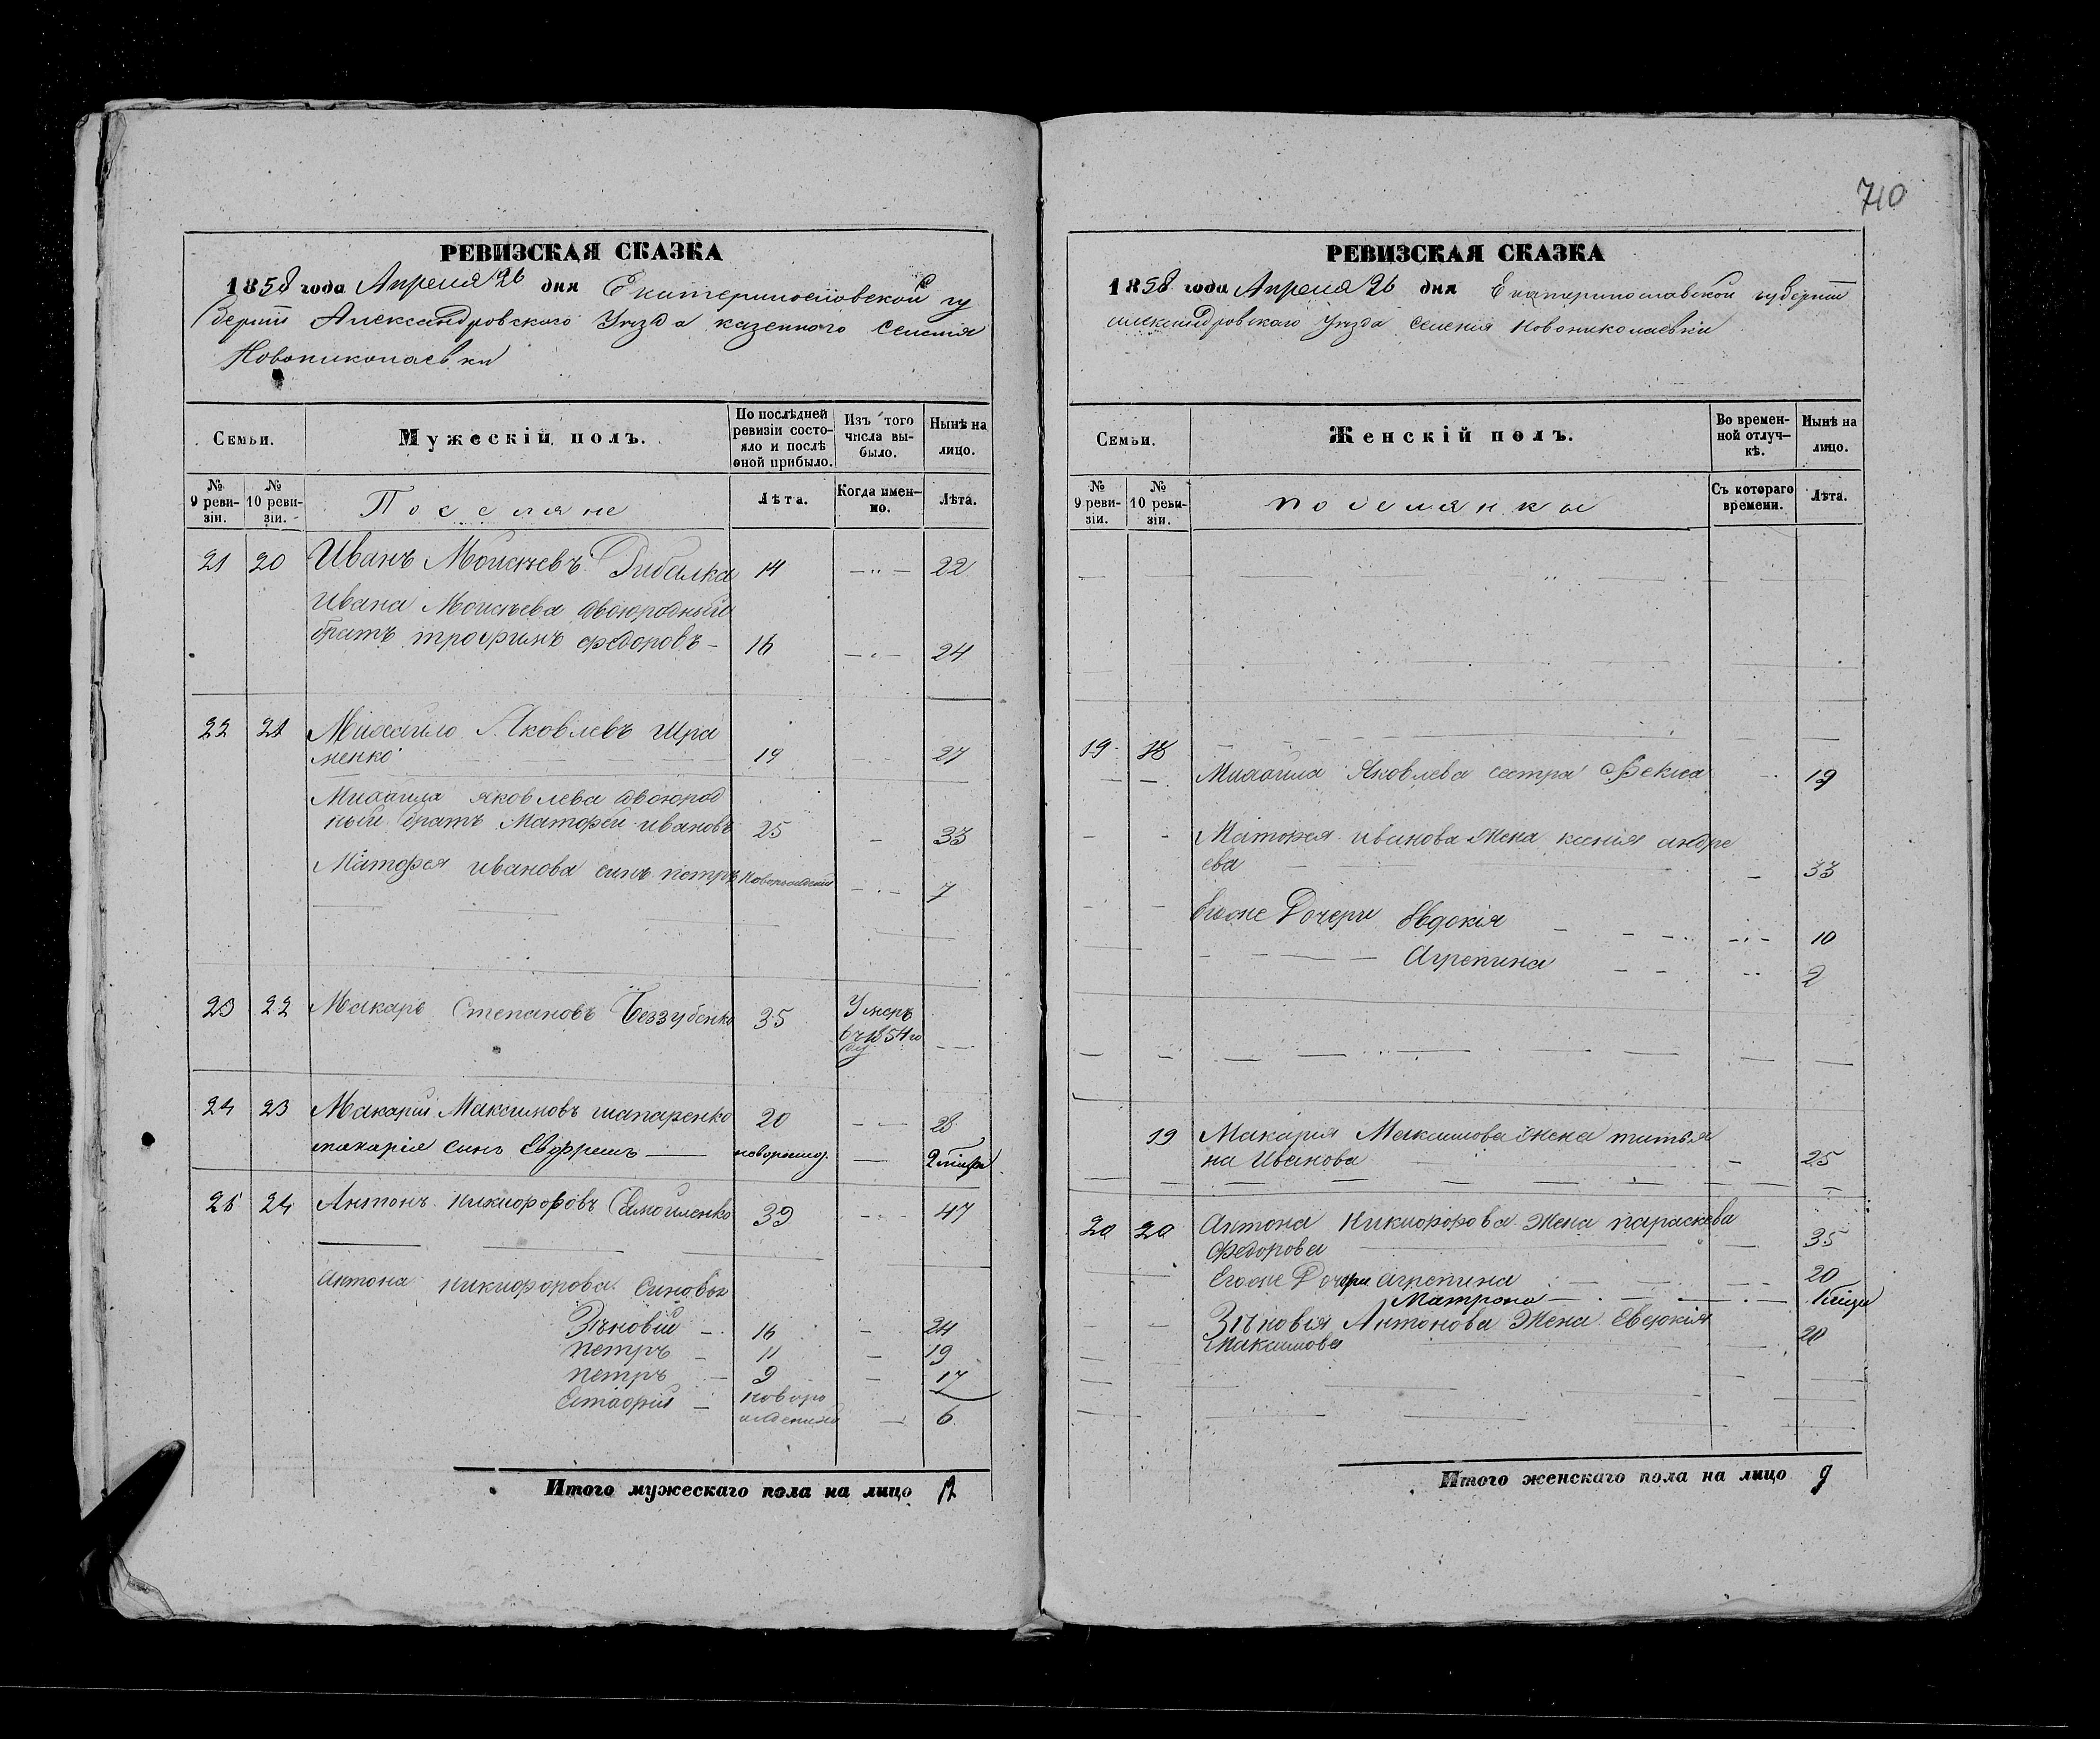 710
РЕВИЗСКАЯ СКАЗКА
1858 года Апреля 26 дня Екатеринославской гу
берніи Александровского Уезда казенного Селенія
Новониколаевки
Семьи.
Мужескій полъ.
По послѣдней ревизіи состояло и послѣ оной прибыло.
Изъ того числа выбыло.
Нынѣ на лицо.
№ 9 ревизіи.
№ 10 ревизіи.
Поселяне
Лѣта.
Когда именно.
Лѣта.
21 20 Иванъ Моисѣевъ Рибалка 14 — „ — 22
Ивана Моисѣева двоюродный
братъ трофимъ федоровъ — 16 — „ — 24
22 21 Михайло Яковлевъ
ненко 19 27
Михайла Яковлева двоюрод
ный братъ Матофей ивановъ 25 — 33
Матофея иванова синъ петръ новорожденій — „ — 7
23 22 Макаръ Степановъ Беззубенко 35 Умеръ
въ 1854 го
ду — —
24 23 Макарий Максимовъ шапаренко 20 — — 28
макарія сынъ Евфремъ — новорожд. —
25 24 Антонъ никифоровъ Самойленко 39 — „ — 47
Антона никифорова синовьи
Зѣновий — 16 — 24
петръ — 11 — 19
петръ — 9 — 17
Естафий — новоро
жденний — 6
Итого мужескаго пола на лицо 12
РЕВИЗСКАЯ СКАЗКА
1858 года Апреля 26 дня Екатеринославской губерніи
александровскаго Уезда селения Новониколаевки
Семьи.
Женскій полъ.
Во временной отлучкѣ.
Нынѣ на лицо.
№ 9 ревизіи.
№ 10 ревизіи.
поселянки
Съ котораго времени.
Лѣта.
19 18
Михайла Яковлева сестра Фекла 19
Матофея иванова Жена ксенія андре
ева — 33
Егоже Дочери Евдокія — „ — 10
Агрепина 2
19 Макария Максимова Жена татья
на Иванова — 25
20 20 Антона Никифорова Жена параскева
Федорова 35
Егоже Дочери агрепина 20
Матрона
Зѣновія Антонова Жена Евдокія
Максимова 20
Итого женскаго пола на лицо 9